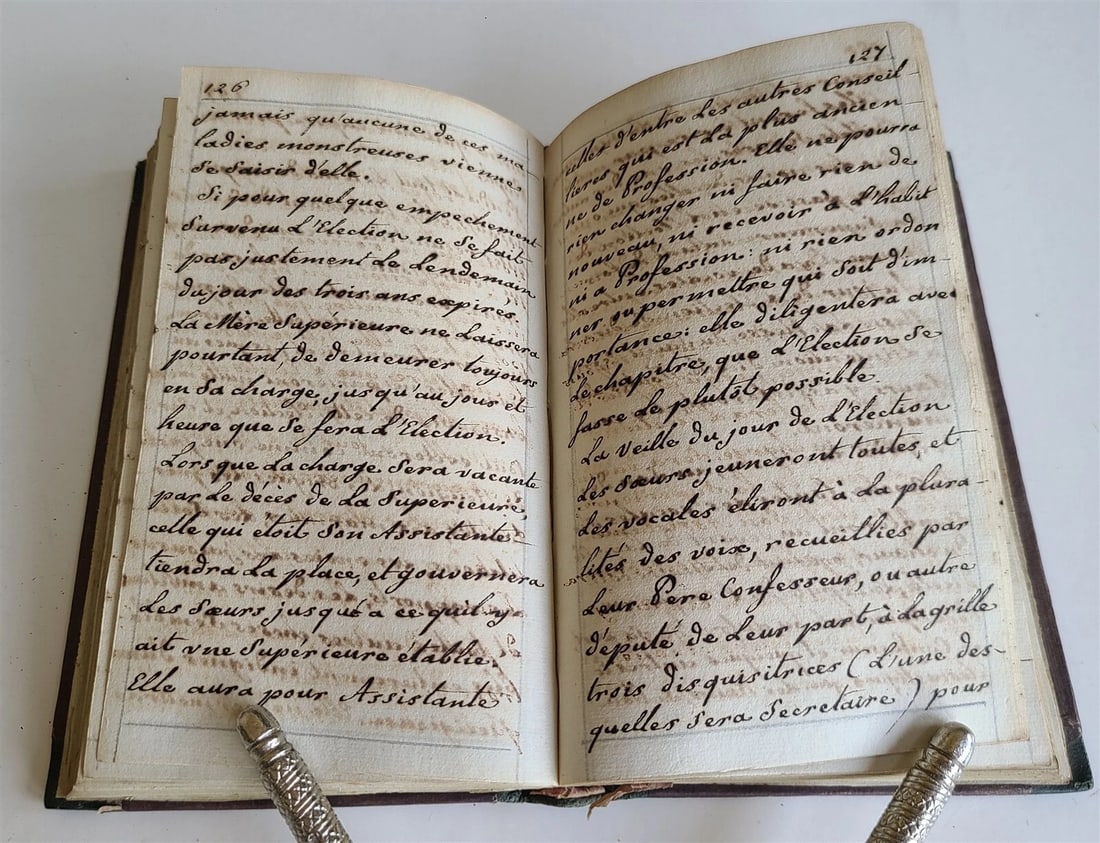 126
jamais qu'aucune de ces ma
ladies monstreuses vienne
Se Saisir d'elle.
Si pour quelque empechement
Survenu L'Election ne Se fait
pas justement Le Lendemain
du jour des trois ans expires,
La Mère Supérieure ne Laissera
pourtant, de demeurer toujours
en Sa charge, jusqu'au jour et
heure que Se fera L'Election.
Lors que La charge Sera vacante
par Le décès de La Superieure,
celle qui étoit Son Assistante
tiendra La place, et gouvernera
Les Sœurs jusqu'a ce quil y
ait vne Supérieure établie.
Elle aura pour Assistante
127
celles d'entre Les autres Conseil-
lieres qui est La plus ancien
ne de Profession. Elle ne pourra
rien changer ni faire rien de
nouveau, ni recevoir à L'habit
ni a Profession: ni rien ordon
ner ou permettre qui Soit d'im-
portance: elle diligentera avec
Le chapitre, que L'Election Se
fasse Le plutôt possible.
La veille du jour de L'Election
Les Sœurs jeuneront toutes, et
Les vocales éliront à La plura-
lités des voix, recueillies par
Leur Pere Confesseur, ou autre
député de Leur part, à La grille
trois disquisitrices (L'une des-
quelles Sera Secretaire) pour